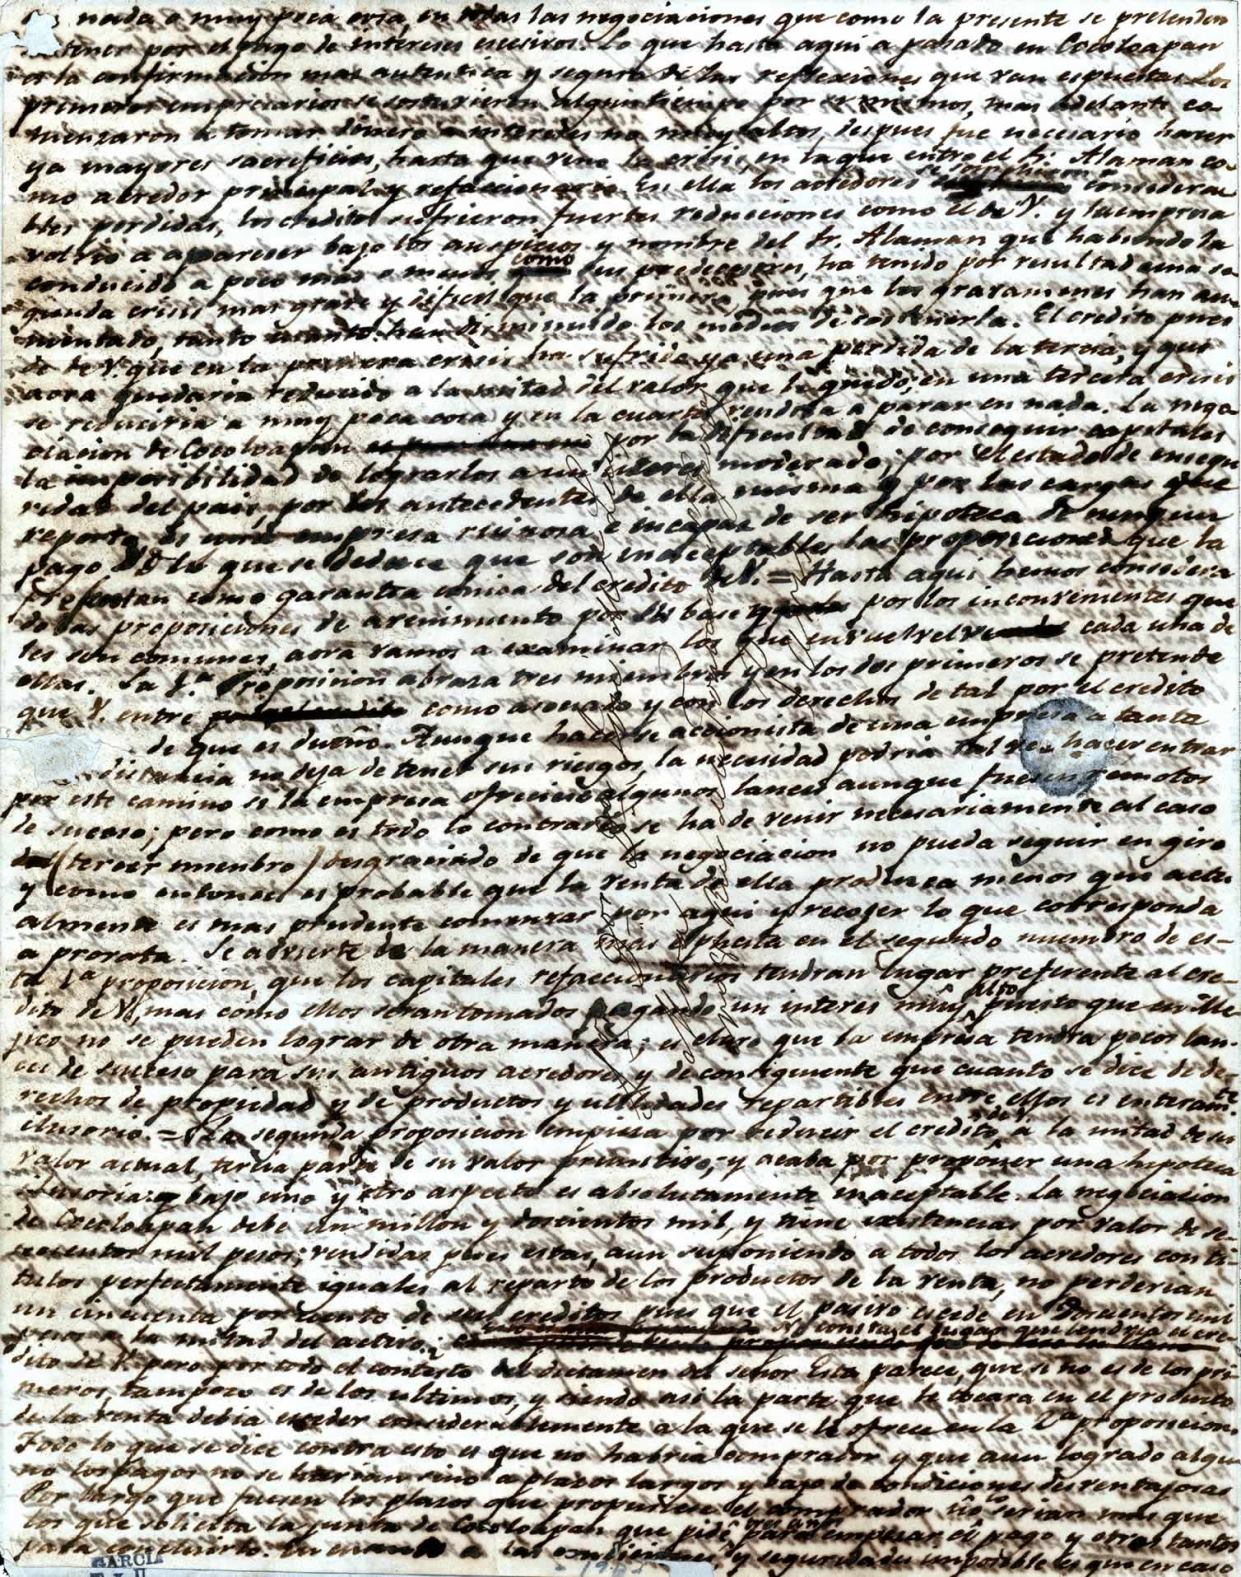 nada o muy poca cosa, en todas las negociaciones que como la presente se pretenden
tener por el pago de intereses escesivos. Lo que hasta aqui a pasado en Cocoloapan
es la confirmacion mas autentica y segura de las reflexiones que van espuestas. Los
primeros empresarios se sostuvieron algun tiempo por si mismos, mas adelante co-
menzaron a tomar dinero a interes no muy altos, despues fue necesario hacer
ya mayores sacrificios, hasta que vino la crisis, en la que entro el Sr. Alaman co-
mo acredor principal y refaccionario. En ella los acredores considera
bles perdidas, los creditos sufrieron fuertes reduciones como el de V. y la empresa
volvio a aparecer bajo los auspicios y nombre del Sr. Alaman que habiendola
conducido a poco mas o menos como sus predecesores, ha tenido por resultado una se-
gunda crisis mas grave y dificil que la primera, pues que los gravamenes han au-
mentado, tanto cuanto han disminuido los medios de sostenerla. El credito pues
de V. que en la primera crisis ha sufrido ya una perdida de la tercia, y que
aora quedaria reducido a la mitad del valor que le quedo, en una tercera crisis
se reduciria a muy poca cosa y en la cuarta vendria a parar en nada. La nego-
ciacion de Cocoloapan por la dificultad de conseguir capitales
la imposibilidad de lograrlos a un interes moderado, por el estado de insegu
ridad del pais, por los antecedentes de ella misma y por las cargas que
reporta es una empresa ruinosa e incapaz de ser hipoteca de ningun
pago. De lo que se deduce que son inaceptables las proposiciones que la
presentan como garantia unica del credito de V. = Hasta aqui hemos considera
do las proposiciones de avenimiento por su base por los inconvenientes que
les son comunes, aora vamos a examinar los que envuelve cada una de
ellas. La 1.ª Proposicion abraza tres miembros y en los dos primeros se pretende
que V. entre como asociado y con los derechos de tal por el credito
de que es dueño. Aunque hacerse accionista de una empresa a tanta
distancia no deja de tener sus riesgos, la necesidad podria tal vez hacer entrar
por este camino si la empresa ofreciese algunos lances aunque fuesen remotos
de suceso; pero como es todo lo contrario se ha de venir necesariamente al caso
(tercer miembro) desgraciado de que la negociacion no pueda seguir en giro
y como entonces es probable que la venta de ella produzca menos que actu
almente es mas prudente comenzar por aqui y recoger lo que corresponda
a prorata. Se advierte de la manera mas esplicita en el segundo miembro de es-
ta 1ª proposicion, que los capitales refaccionarios tendran lugar preferente al cre-
dito de V, mas como ellos seran tomados pagando un interes muy alto, puesto que en Me-
jico no se pueden lograr de otra manera; es claro que la empresa tendra pocos lan-
ces de suceso para sus antiguos acredores y de consiguiente que cuanto se dice de de-
rechos de propiedad y de productos y utilidades repartibles entre ellos es enteramte
ilusorio. = La segunda proposicion empieza por reducir el credito de V. a la mitad de su
valor actual, tercia parte de su valor primitivo, y acaba por proponer una hipoteca
ilusoria: bajo uno y otro aspecto es absolutamente inaceptable. La negociacion
de Cocoloapan debe un millon y doscientos mil, y tiene existencias por valor de se-
tecientos mil pesos; vendidas pues estas, aun suponiendo a todos los acredores con ti-
tulos perfectamente iguales al reparto de los productos de la venta, no perderian
un cincuenta por ciento de sus creditos pues que el pasivo escede en doscientos mil
pesos a la mitad del activo; no consta el lugar que tendria el cre-
dito de V. pero por todo el contesto del dictamen del señor Esta parece, que si no es de los pri-
meros, tampoco es de los ultimos, y siendo asi la parte que le tocara en el producto
de la venta debia esceder considerablemente a la que se le ofrece en la 2ª proposicion.
Todo lo que se dice contra esto es que no habria comprador y que aun logrado algu-
no los pagos no se harian sino a plazos largos y bajo de condiciones desventajosas
Por largo que fuesen los plazos que propusiese el comprador no serian mas que
los que solicita la junta de Cocoloapan que pide tres años para empezar el pago y otros tantos
para concluirlo. En cuanto a las condiciones y seguridades imposible es que en caso
GARCIA